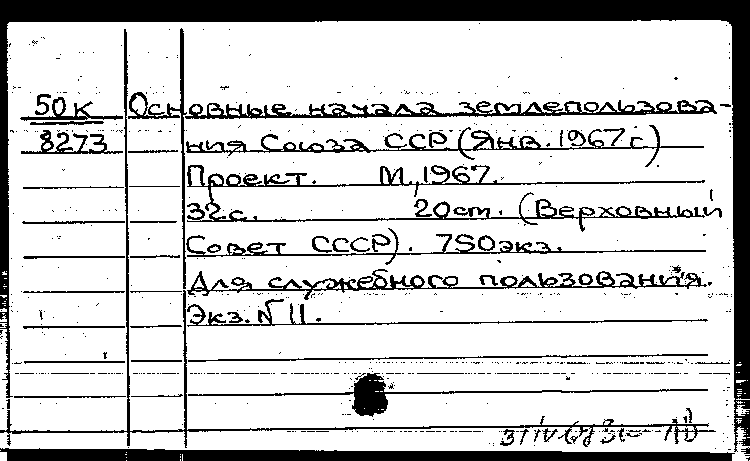 50К Основные начала землепользова-
8273 ния Союза ССР (Янв. 1967 г.)
Проект. М, 1967.
32с. 20см. (Верховный
Совет СССР). 750экз.
Для служебного пользования.
Экз. № 11.